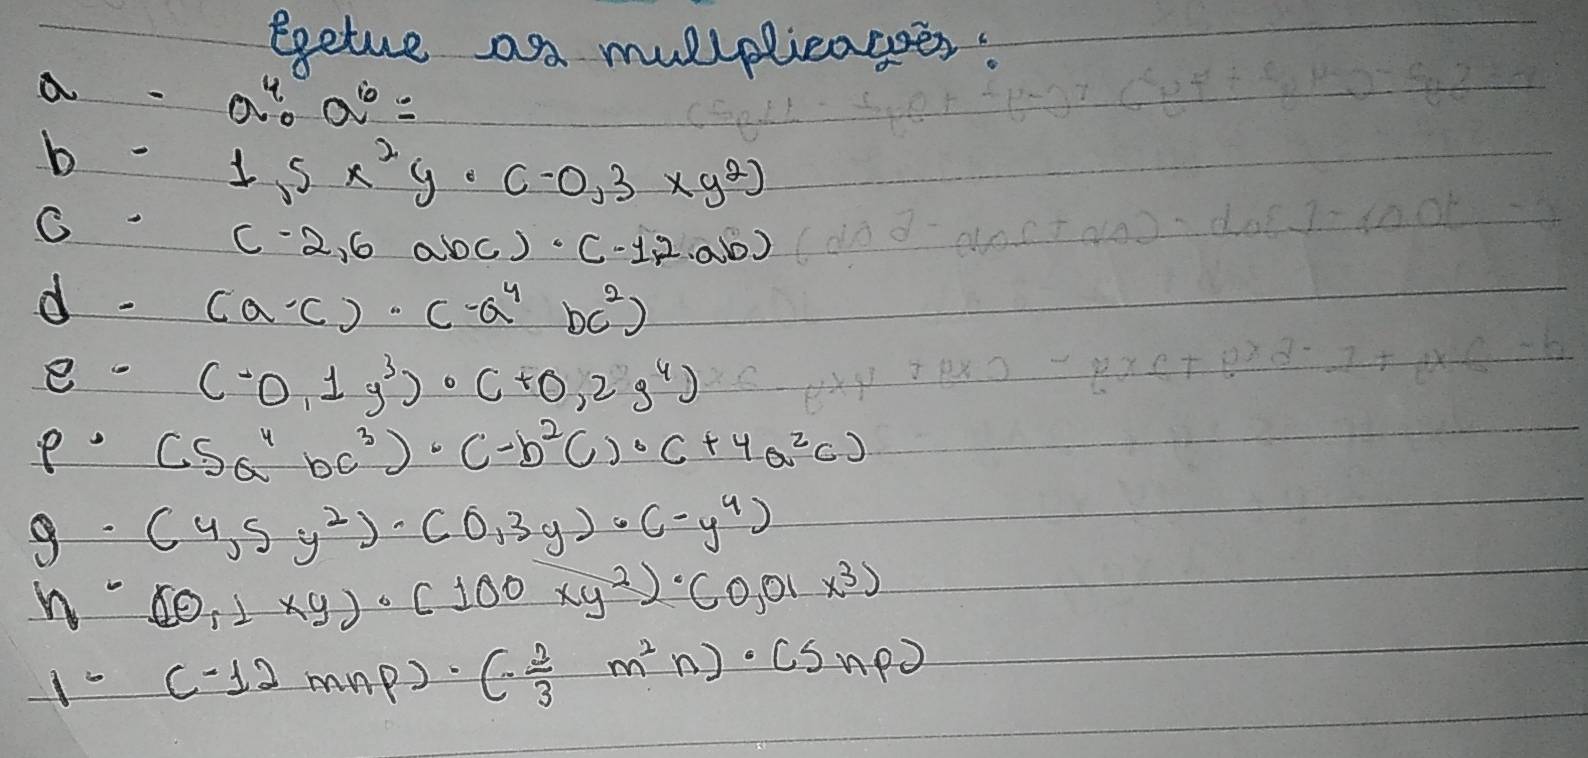 Efetue as mulliplicações:
a - a⁴ · a¹⁰ =
b - 1,5 x² y · (-0,3 xy²)
c - (-2,6 abc) · (-1,2 ab)
d - (a-c) · (-a⁴ bc²)
e - (-0,1 y³) · (+0,2 y⁴)
f - (5a⁴ bc³) · (-b²c) · (+4a²c)
g - (4,5 y²) · (0,3y) · (-y⁴)
h - (0,1 xy) · (100 xy²) · (0,01 x³)
i - (-12 mnp) · (-2/3 m² n) · (5np)